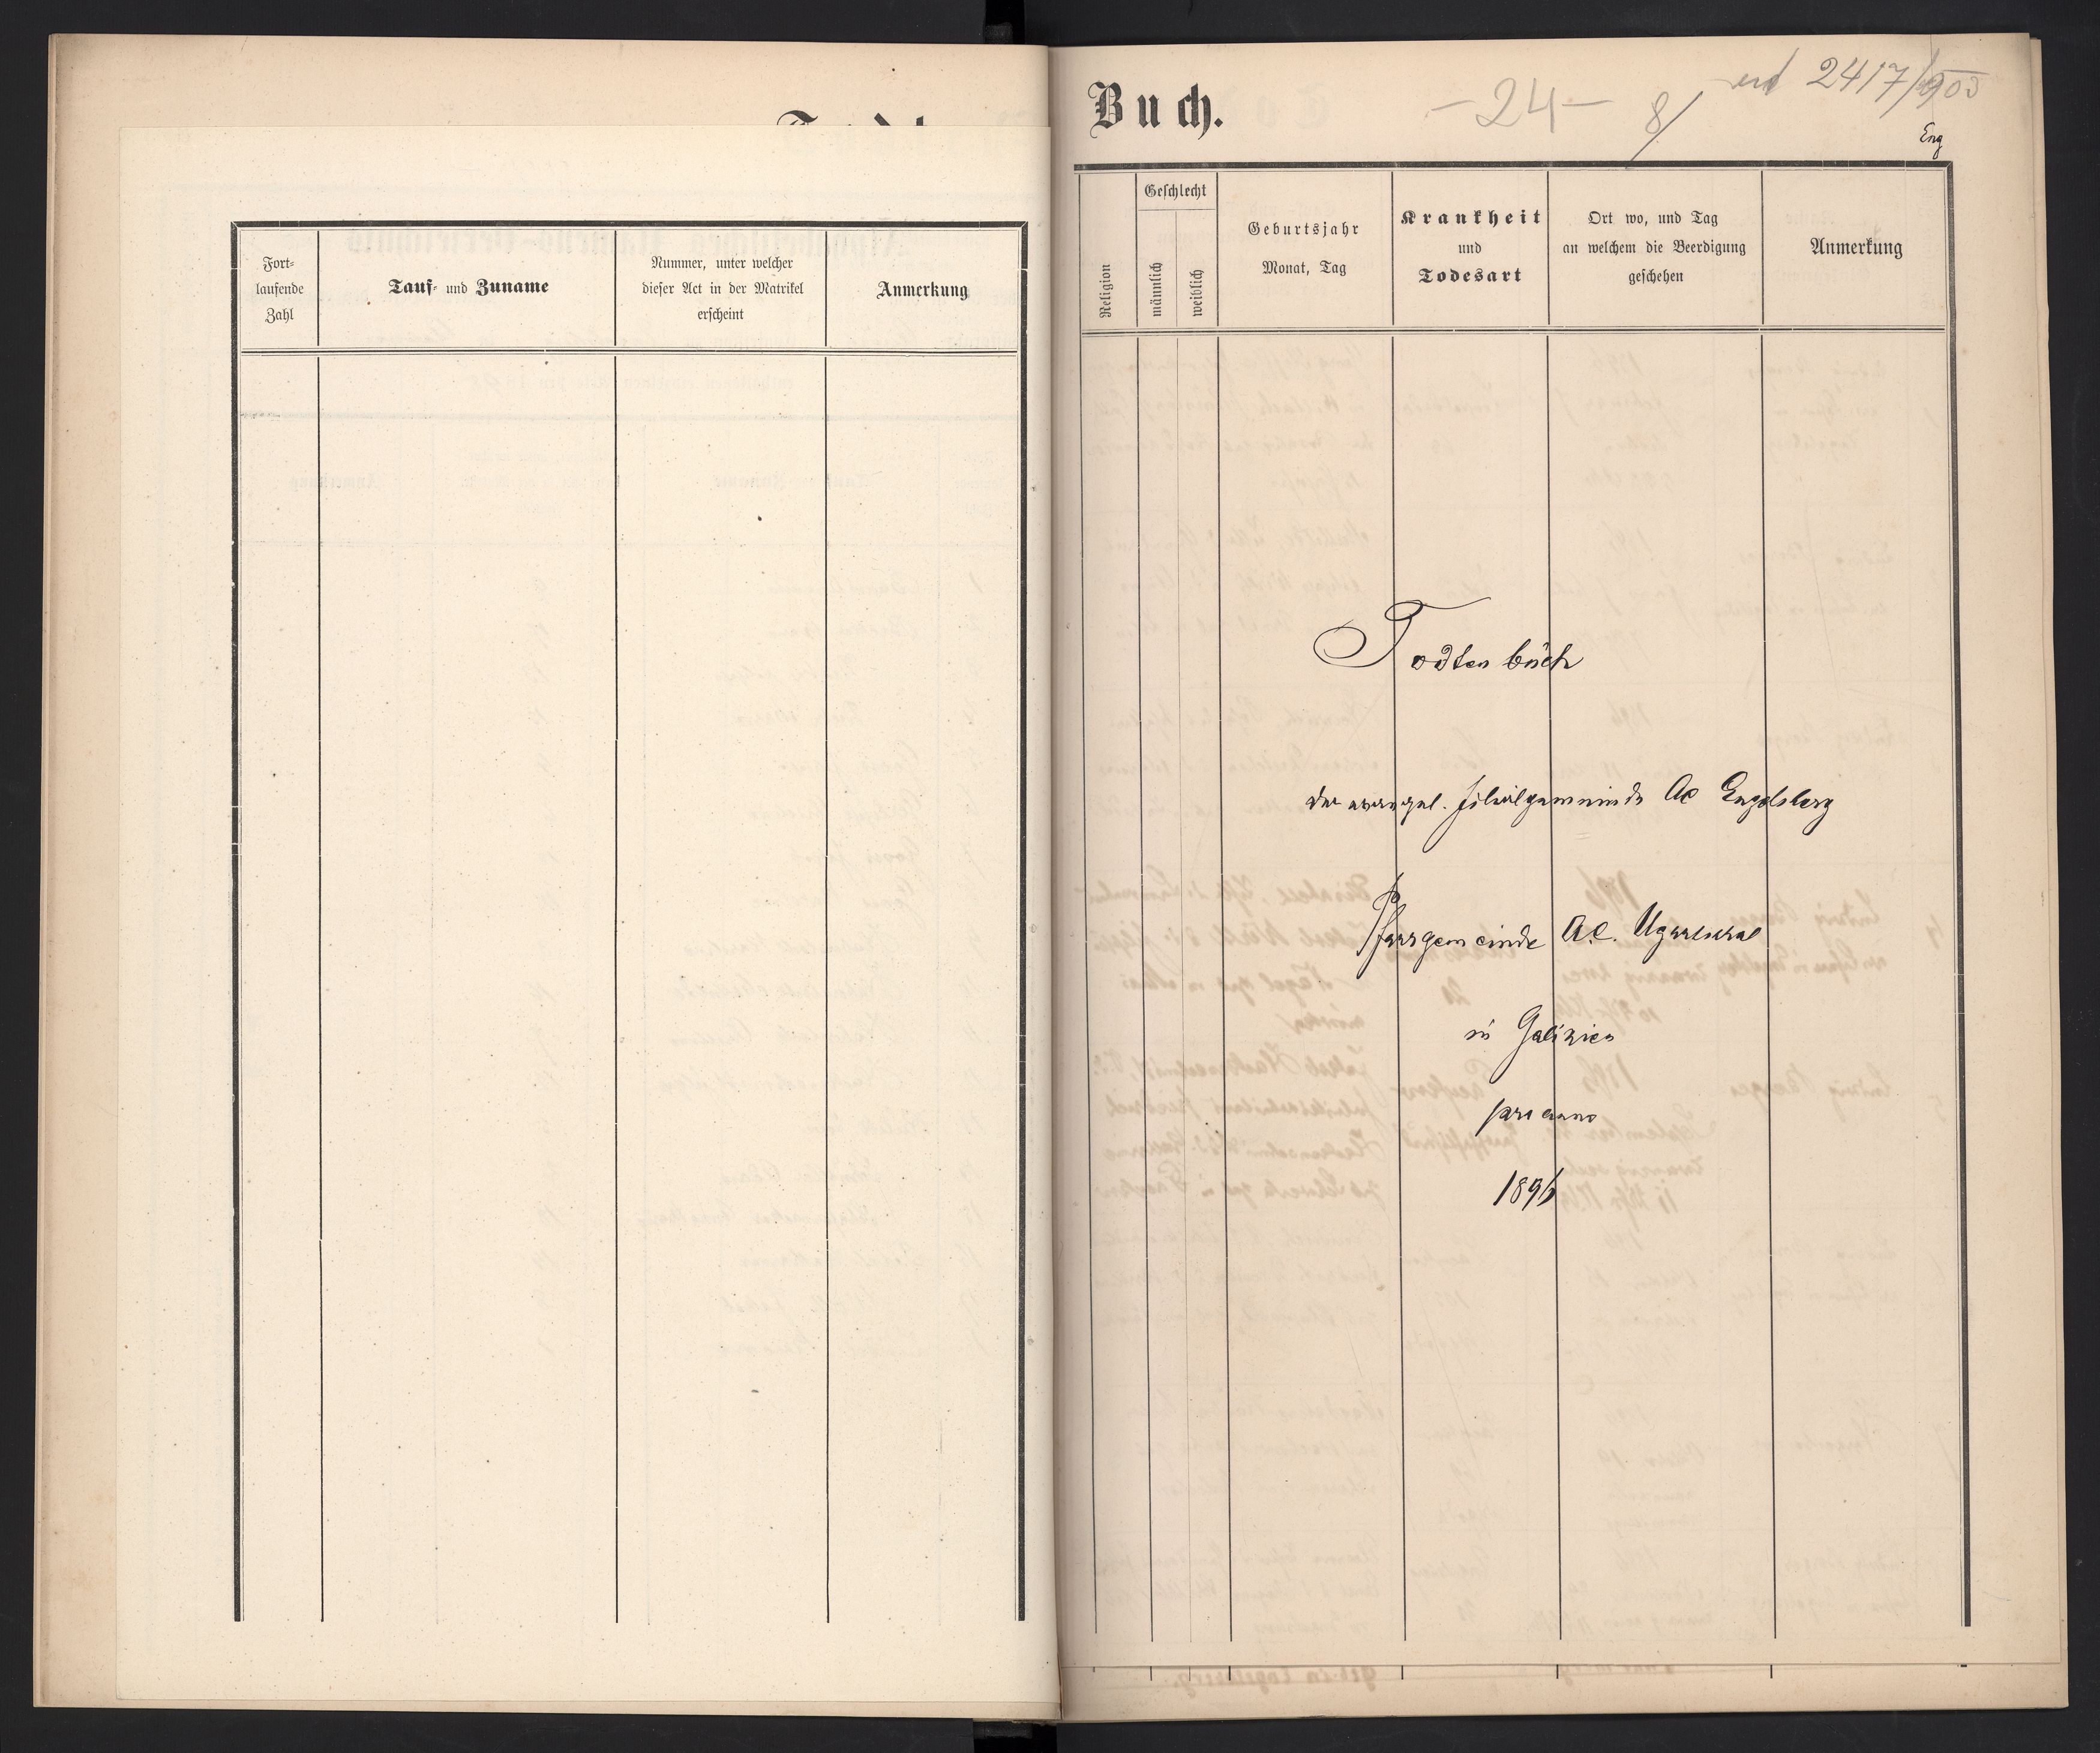 Fort-
laufende
Zahl
Tauf- und Zuname
Nummer, unter welcher
dieser Act in der Matrikel
erscheint
Anmerkung
Buch.
-24-
8/
2417/903
Eng
Religion
Geschlecht
männlich
weiblich
Geburtsjahr
Monat, Tag
Krankheit
und
Todesart
Ort wo, und Tag
an welchem die Beerdigung
geschehen
Anmerkung
Todtenbuch
der evangel. Filialgemeinde AC Engelsberg
Pfarrgemeinde A.C. Ugartsthal
in Galizien
pro anno
1896